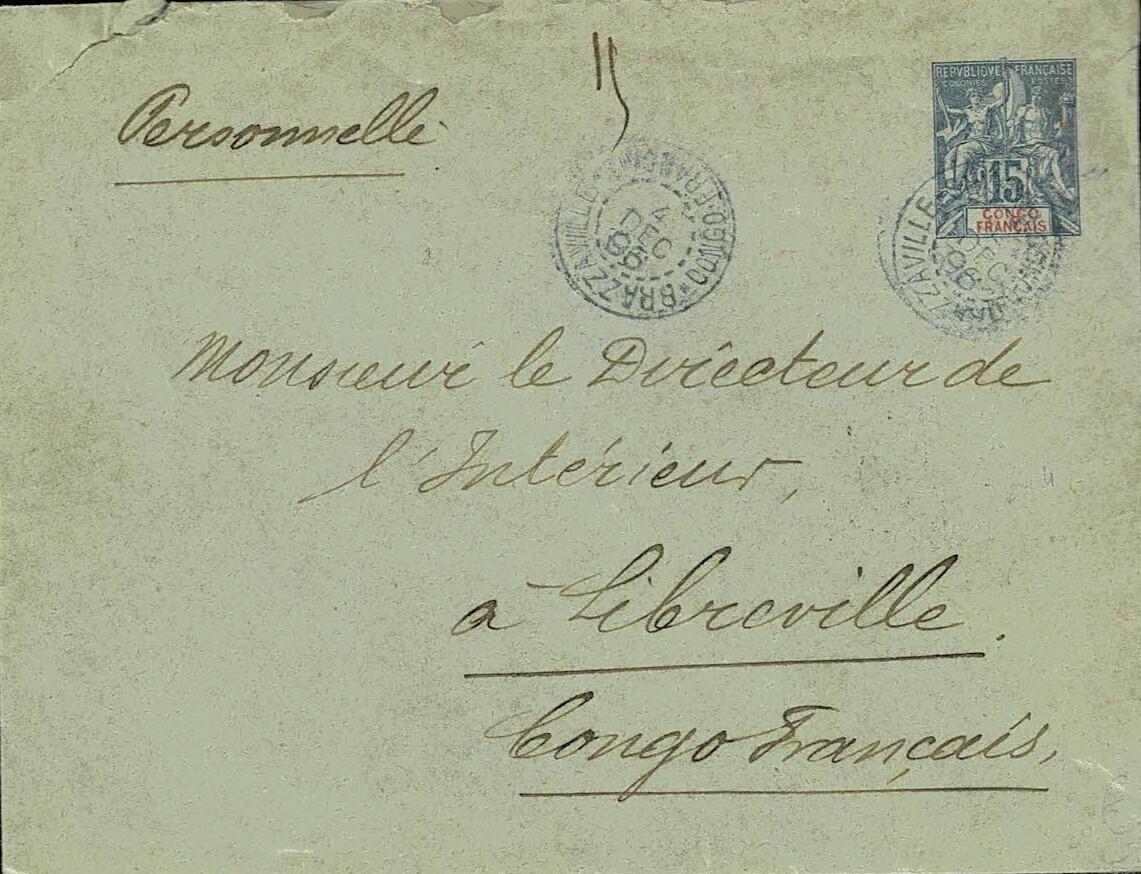 Personnelle
REPVBLIQVE FRANÇAISE
COLONIES POSTES
15
CONGO
FRANÇAIS
BRAZZAVILLE CONGO FRANÇAIS
4
DEC
96
BRAZZAVILLE
DEC
96
Monsieur le Directeur de
l'Intérieur,
à Libreville.
Congo Français,